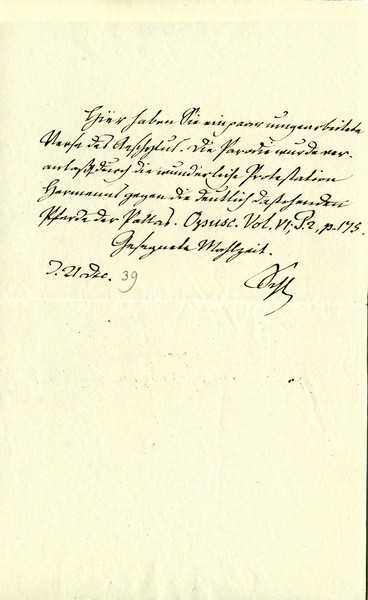 Hier haben Sie ein paar umgearbeitete
Verse des Aeschylus. Die Parodie wurde ver-
anlaßt durch die wunderliche Protestation
Hermanns gegen die deutlich dastehenden
Pferde der Pallas. Opusc. Vol. VI, P. 2, p. 175.
Gesegnete Mahlzeit.
d. 21 Dec. 39
Schl